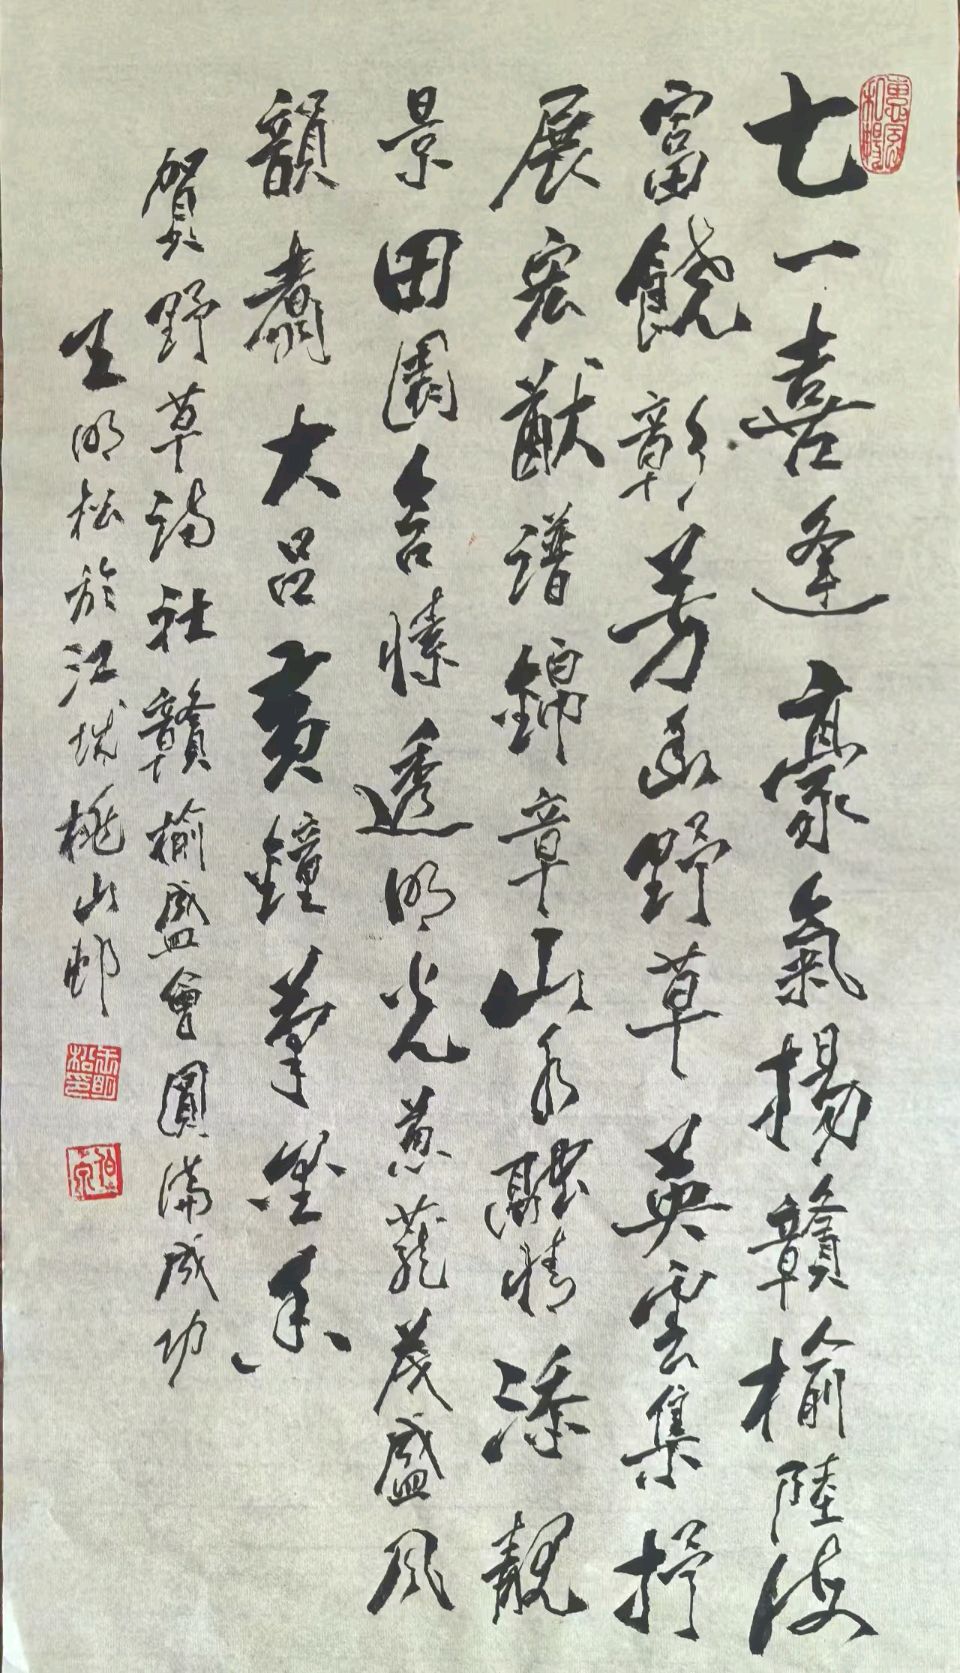 七一喜逢豪氣揚贛榆陸海
富饒彰芳函野草英雲集抒
展宏猷譜錦章山水聯情添靚
景田園含愫透明光蔥蘢茂盛風
韻翥大呂黃鐘拳坐香
賀野草詩社贛榆盛會圓滿成功
王明松於江城桃山邨